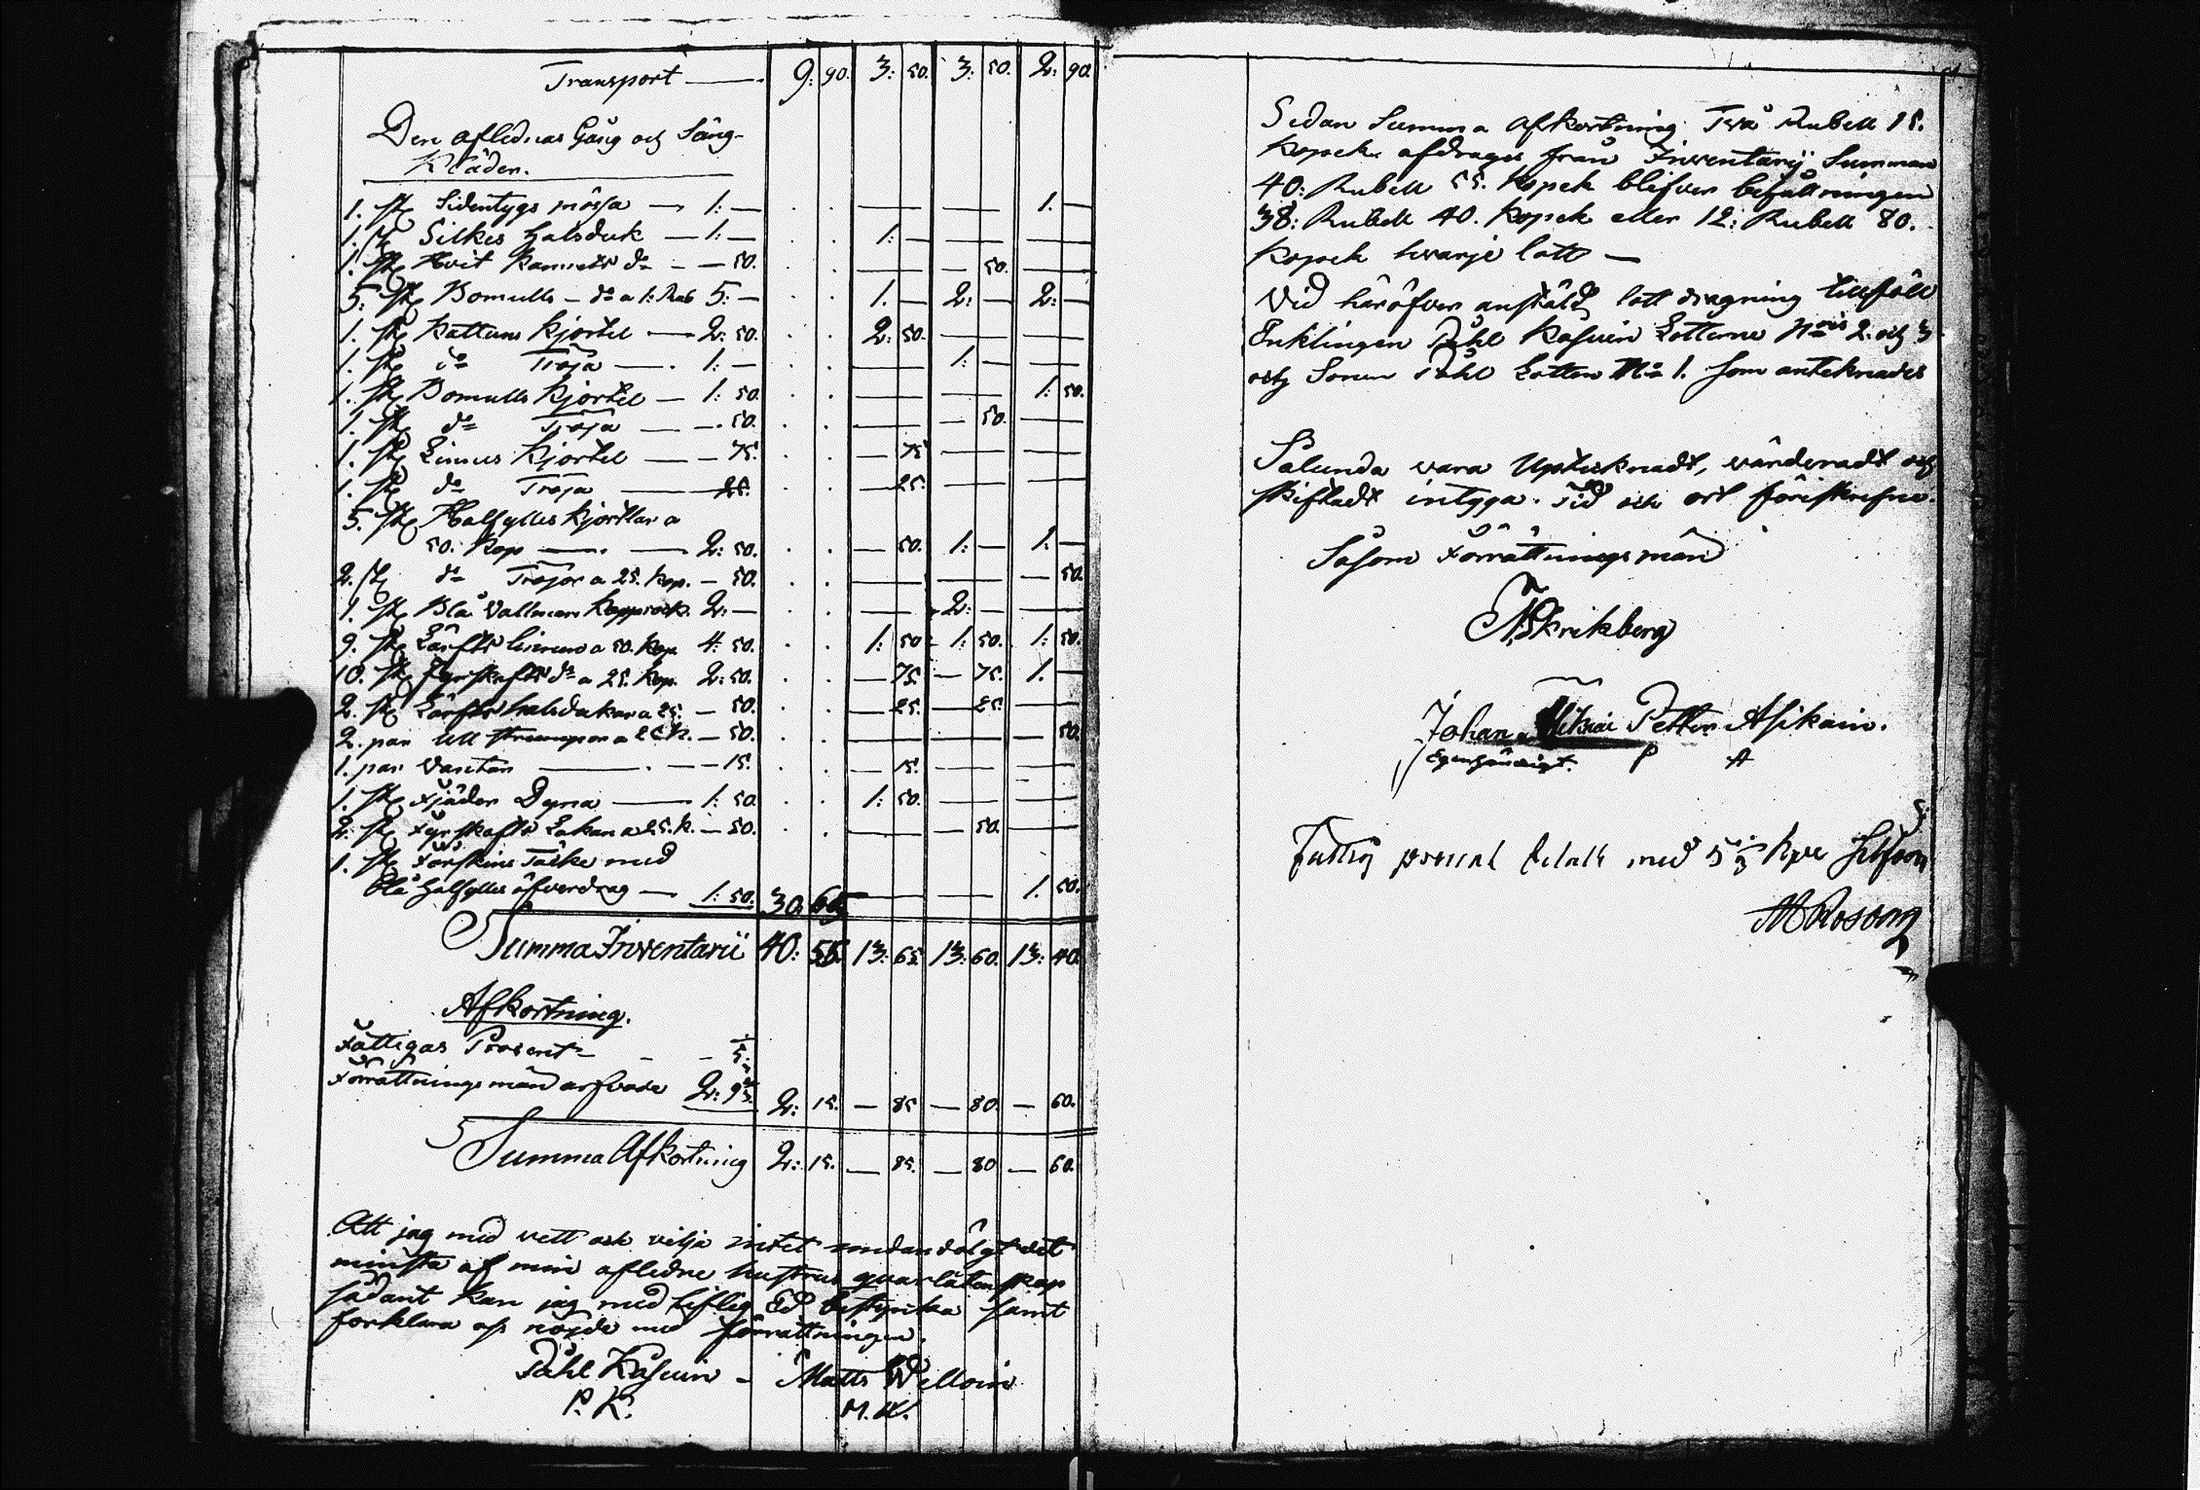 Transport — 9: 90. 3: 50. 3: 50. 2: 90.
Den aflednas Gång och Säng-
Kläder.
1. st Sidentygs mössa — 1: — . . — — — — 1. —
1. st Silkes halsduk — 1: — . . 1: — — — — —
1. st Hvit Kamriks do — — 50. . . — — — 50. — —
5. st Bomulls — do a 1: Rub 5: — . . 1. — 2: — 2: —
1. st Kattuns Kjortel — 2: 50. . . 2: 50. — — — —
1. st do Tröja — . 1: — . . — — 1: — — —
1. st Bomulls Kjortel — 1: 50. . . — — — — 1: 50.
1. st do Tröja — — . 50. . . — — — 50. — —
1. st Linnes Kjortel — — 75. . . — 75 — — — —
1. st do Tröja — 25. . . — 25. — — — —
5. st Halfylles Kjortlar a
50. Kop — . — 2: 50. . . — 50. 1: — 1: —
2. st do Tröjor a 25. Kop. — 50. . . — — — — — 50.
1. st Blå Vallmars Kapprock. 2: — . . — — 2: — — —
9. st Lärfts linnen a 50. Kop 4: 50. . . 1: 50 1: 50. 1: 50.
10. st Fyrskafts do a 25. Kop. 2: 50. . . — 75. — 75. 1. —
2. st Lärfts halsdukar a 25. — 50. . . — 25. — 25. — —
2. par Ull strumpor a 25 k. — 50. . . — — — — — 50.
1. par Vantar — . — — 15. . . — 15. — — — —
1. st Fjäder Dyna — 1: 50. . . 1: 50. — — — —
2. st Fyrskafts Lakan a 25. k. — 50. . . — — — 50. — —
1. st Fårskins Täcke med
blå halfylles öfverdrag — 1: 50. 30. 65 — — — — 1. 50.
Summa Inventarii 40: 55. 13: 65. 13: 60. 13: 40.
Afkortning.
Fattigas Procent — — — 5.
Förrättnings män arfvode 2: 9 2: 15. — 85 — 80. — 60.
Summa Afkortning 2: 15. — 85. — 80 — 60.
Att jag med vett och vilja intet undandålgt det
minsta af min afledne hustrus quarlåtenskap
sådant kan jag med liflig Ed bestyrka samt
forklara os nöjde med förrättningen.
Påhl Kasuin — Matts Welloin
P. K. M. W.
Sedan Summa Afkortning Två Rubell 15.
Kopek. afdrages från Inventarij Summan
40: Rubell 55. Kopek blifver behållningen
38: Rubell 40. Kopek eller 12: Rubell 80.
Kopek hvarje lott —
Vid häröfver anstäld lott dragning tillföll
Enklingen Påhl Kasuin Lotterne No 2. och 3
och Sonen Påhl Lotten No 1. som anteknades
Sålunda vara Upteknadt, värderadt och
skiftadt intyga. Tid och ort föreskrefne.
Såsom Förrättningsmän
Johan Petter Asikain.
Egenhändigt. P A
Fattig procent betalt med 5 kpr